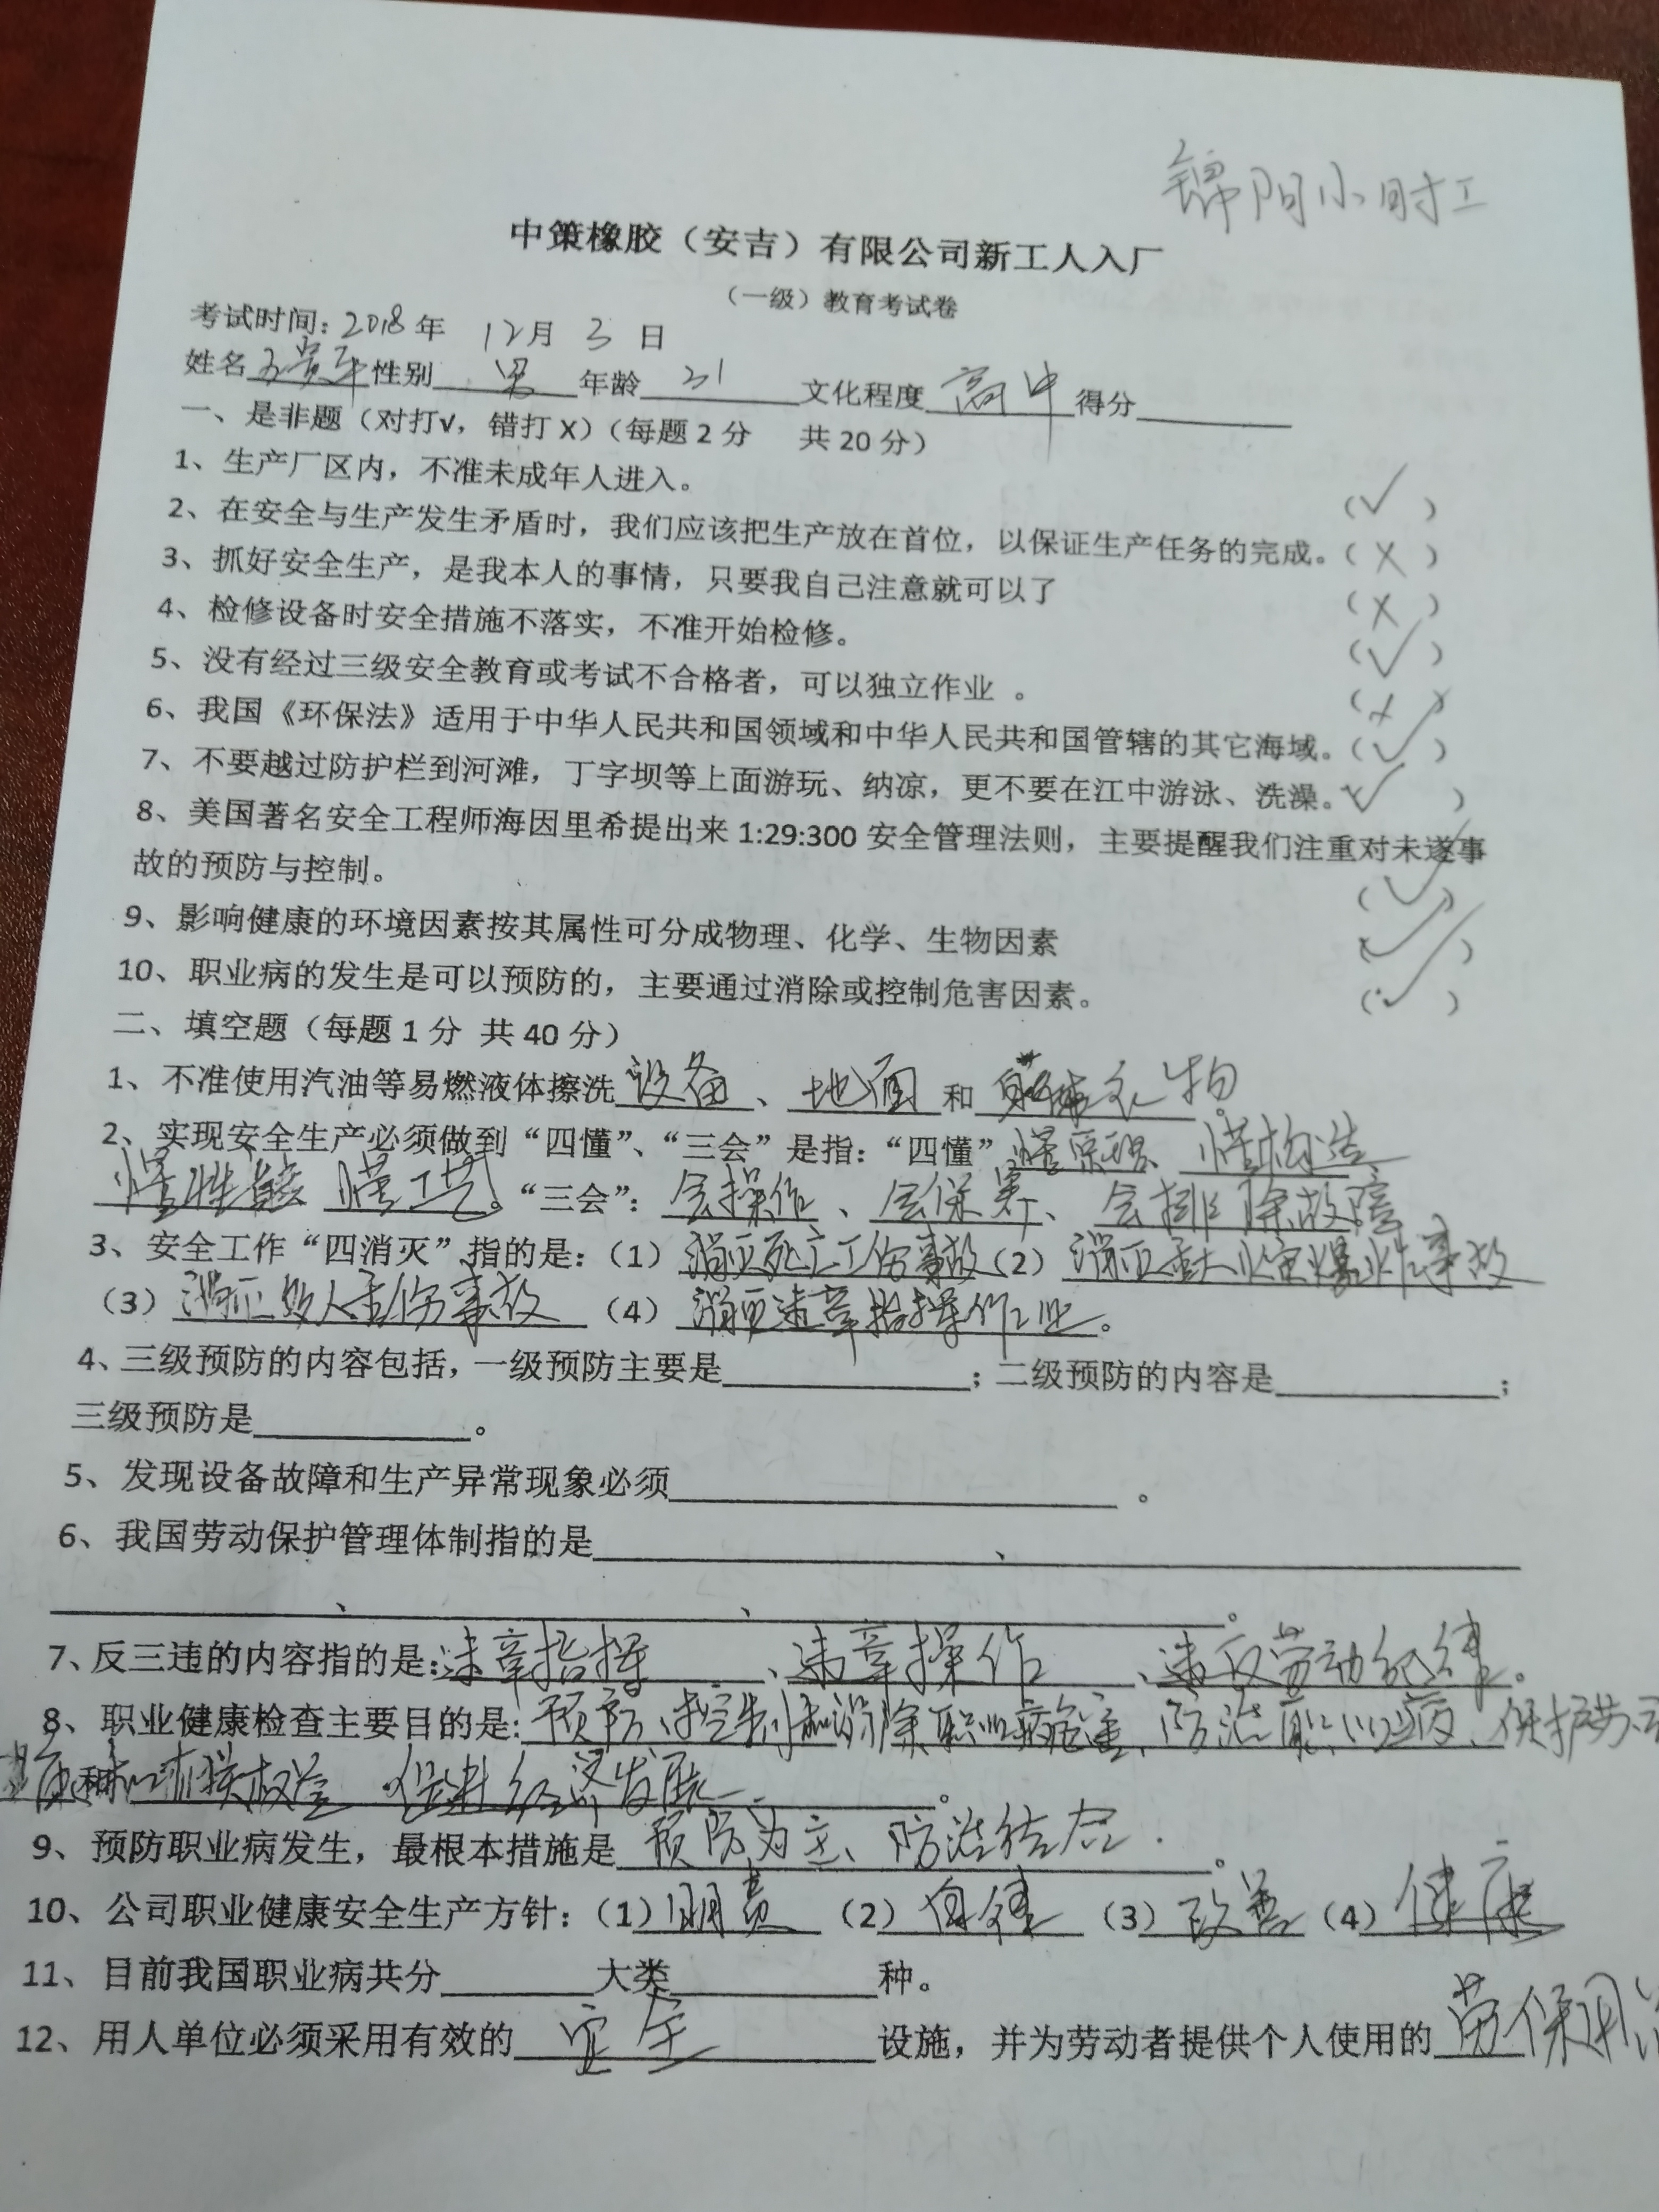 锦阳小时工
中策橡胶（安吉）有限公司新工人入厂
（一级）教育考试卷
考试时间：2018年 12月 3 日
姓名 性别 男 年龄 31 文化程度 高中 得分
一、是非题（对打√，错打 X）（每题 2 分 共 20 分）
1、生产厂区内，不准未成年人进入。（√）
2、在安全与生产发生矛盾时，我们应该把生产放在首位，以保证生产任务的完成。（X）
3、抓好安全生产，是我本人的事情，只要我自己注意就可以了（X）
4、检修设备时安全措施不落实，不准开始检修。（√）
5、没有经过三级安全教育或考试不合格者，可以独立作业 。（X）
6、我国《环保法》适用于中华人民共和国领域和中华人民共和国管辖的其它海域。（√）
7、不要越过防护栏到河滩，丁字坝等上面游玩、纳凉，更不要在江中游泳、洗澡。（√）
8、美国著名安全工程师海因里希提出来 1:29:300 安全管理法则，主要提醒我们注重对未遂事
故的预防与控制。（√）
9、影响健康的环境因素按其属性可分成物理、化学、生物因素（√）
10、职业病的发生是可以预防的，主要通过消除或控制危害因素。（√）
二、填空题（每题 1 分 共 40 分）
1、不准使用汽油等易燃液体擦洗 设备 、 地面 和 衣物 。
2、实现安全生产必须做到“四懂”、“三会”是指：“四懂” 懂原理、 懂构造
懂性能 懂工艺。“三会”：会操作 、会保养 、 会排除故障
3、安全工作“四消灭”指的是：（1）消灭死亡工伤事故（2）消灭重大火灾爆炸事故
（3）消灭多人重伤事故 （4）消灭违章指挥作业。
4、三级预防的内容包括，一级预防主要是 ；二级预防的内容是 ；
三级预防是 。
5、发现设备故障和生产异常现象必须 。
6、我国劳动保护管理体制指的是 、
、 、 。
7、反三违的内容指的是：违章指挥 、违章操作 、违反劳动纪律。
8、职业健康检查主要目的是：预防、控制和消除职业病危害、防治职业病、保护劳动
健康和相关权益 促进经济发展 。
9、预防职业病发生，最根本措施是 预防为主、防治结合 。
10、公司职业健康安全生产方针：（1）明责 （2）保健 （3）改善（4）健康
11、目前我国职业病共分 大类 种。
12、用人单位必须采用有效的 安全 设施，并为劳动者提供个人使用的 劳保用